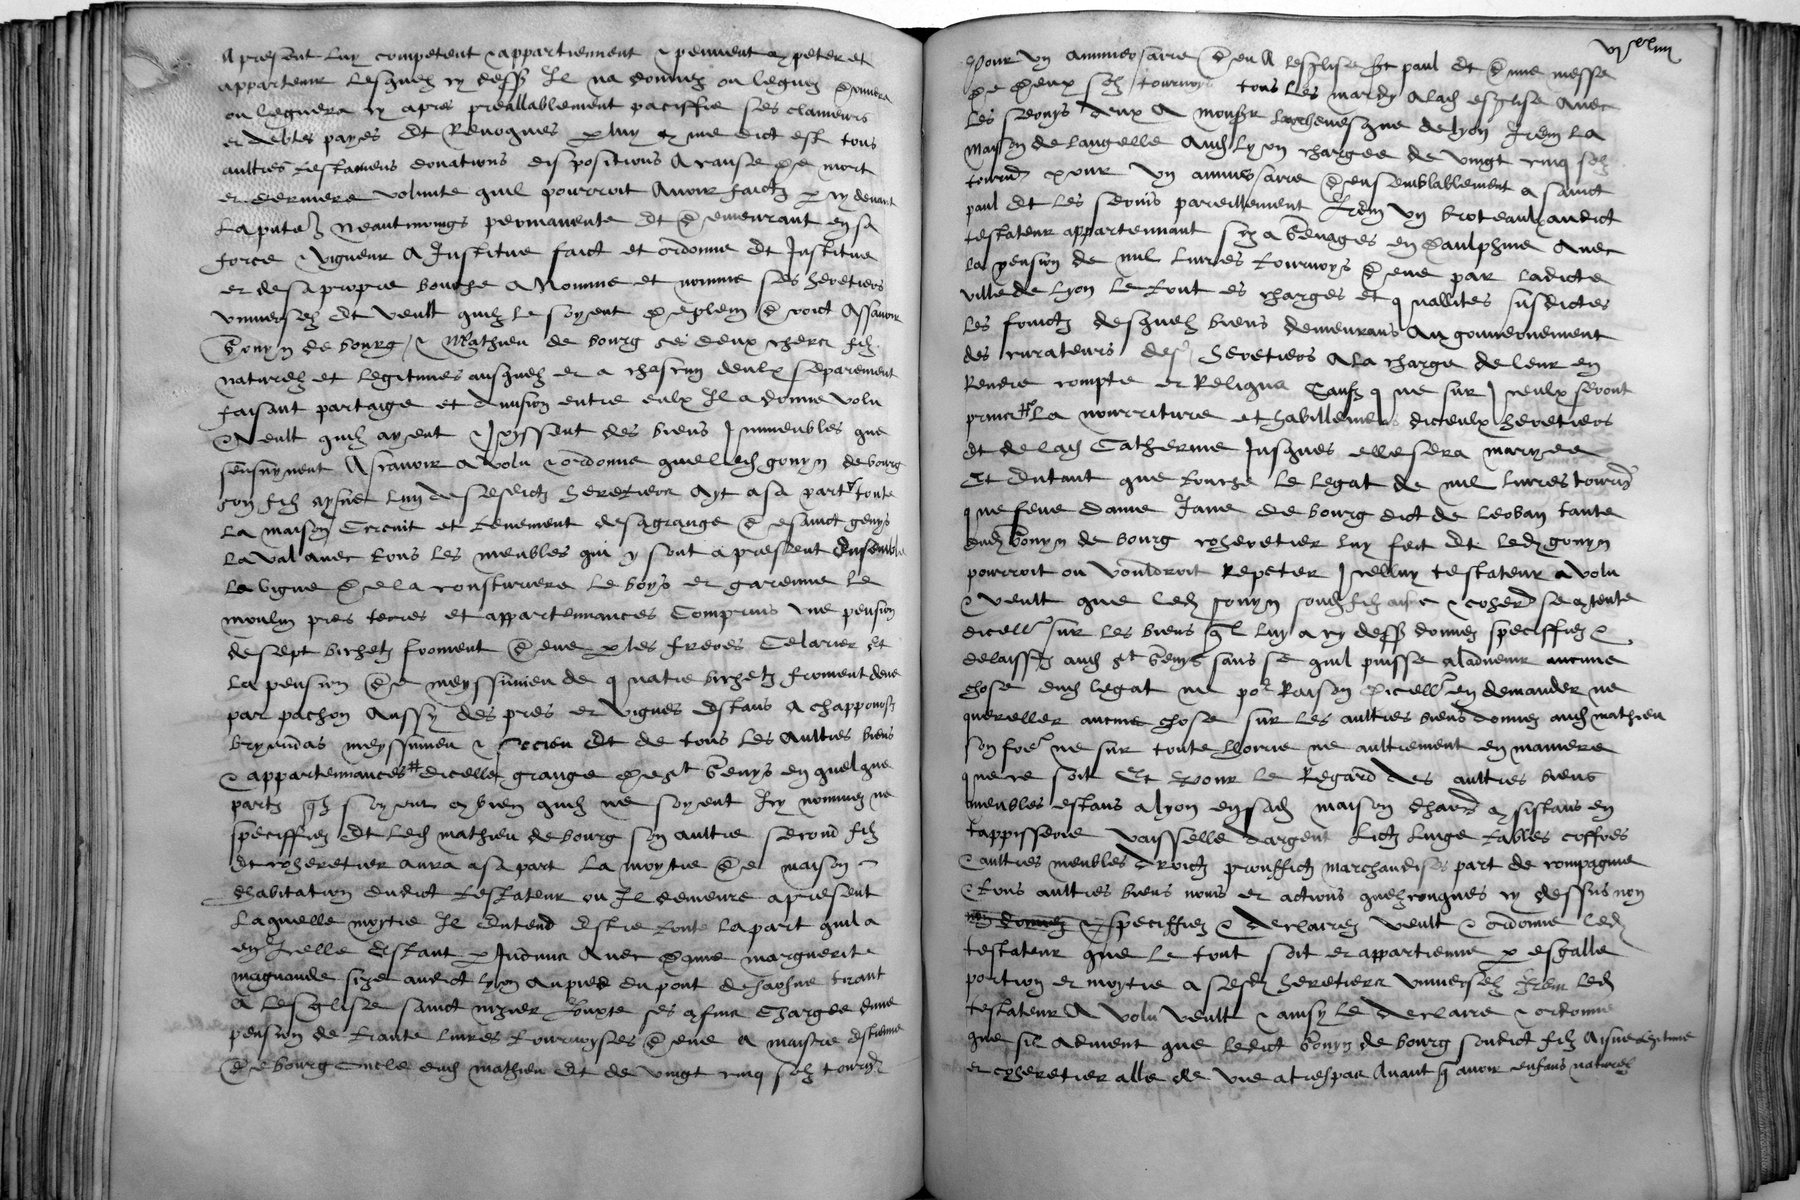 A present luy competent & appartiennent & peuvent expeter et
appartenir lesquelz cy dessus Il na donnez ou leguez donnera
ou leguera cy apres preallablement paciffie ses clameurs
et debtes payes Et Revoques par luy comme dict est tous
aultres testamens donations dispositions A cause de mort
et derniere volunte quil pourroit Avoir faictz par cy devant
neantmoings permanente Et demeurant en sa
force & vigueur A Institue faict et ordonne Et Institue
et de sa propre bouche A Nomme et nomme ses heretiers
universelz Et veult quilz le soyent de plein droict Assavoir
Gonyn de bourg & Mathieu de bourg ses deux chers filz
naturelz et legitimes ausquelz et a chescun deulx separement
faisant partaige et division entre eulx Il a donne volu
& Veult quilz ayent & Joyssent des biens Immeubles que
sensuyvent Ascavoir a volu & ordonne que led gonyn de bourg
son filz aysne lung de sesdictz heretiers Ayt a sa part toute
la maison Circuit et tenement de sa grange de sainct genys
Laval avec tous les meubles qui y sont a present Ensemble
la vigne de la cousturiere le boys et garenne le
moulin pres terres et appartenances Comprins une pension
de sept bichetz froment deue par les freres Celarier Et
la pension de meyssimieu de quatre bichetz froment deue
par pachon Aussy des pres et vignes Estans A chapponost
bryndas meyssimieu & Et de tous les Aultres biens
& appartenances dicelle grange de st Genys en quelque
partz quilz soyent et bien quilz ne soyent Icy nommez ne
speciffiez Et led mathieu de bourg son aultre second filz
et coheretier aura a sa part la moytie de maison
dhabitation dudict testateur ou Il demeure a present
Laquelle moytie Il Entend Estre toute la part quil a
en Icelle Estant par Indivis Avec dame marguerite
size audict lyon Au pied du pont de saosne tirant
A lesglise sainct nizier Jouxte ses confins Chargee dune
pension de trante livres tournoyses deue A maistre Estienne
de bourg Oncle dud mathieu Et de vingt cinq solz tourn
vi xx iiii
Pour un anniversaire deu A lesglise st paul Et dune messe
de deux solz tournoys tous les mardy A lad esglise Avec
les servys deux A monsr larchevesque de lyon Item la
maison de langelle Aud lyon chargee de vingt cinq solz
tourn pour un anniversaire deu semblablement a sainct
paul Et les servis pareillement Item un broteaul audict
testateur appartennant siz a Venages en daulphine Avec
la pension de mil livres tournoys deue par ladicte
ville de lyon le tout es charges et quallites susdictes
les fruictz desquelz biens demeurans Au gouvernement
des curateurs des heretiers A la charge de leur en
Rendre compte et Reliqua Saufz que sur Iceulx seront
la nourriture et habillemens diceulx heretiers
Et de lad Catherine Jusques elle sera maryee
Et Dutant que touche le legat de mil livres tourn
que feue dame Jane de bourg dict de leoban tante
dud gonyn de bourg coheretier luy feit Et led gonyn
pourroit ou vouldroit Repeter Icelluy testateur a volu
& veult que led gonyn soud filz aisne & coher se contente
dicell sur les biens quil luy a cy dessus donnez speciffiez &
delaissez aud st Genys sans se quil puisse a ladvenir aucune
chose dud legat ne por Raison dicell en demander ne
quereller aucune chose sur les aultres biens donnez aud mathieu
son frer ne sur toute lhorrie ne aultrement en maniere
que ce soit Et Pour le Regard des aultres biens
meubles estans a lyon en sad maison consistans en
tappisserie vaisselle dargent lictz linge tables coffres
& aultres meubles Droictz prouffictz marchandises part de compagnie
& tous aultres biens noms et actions quelzconques cy dessus non
non donnez & speciffiez & declairez veult & ordonne led
testateur que le tout soit et appartienne par esgalle
portion et moytie a sesd heretiers Universelz Item led
testateur A volu veult & ainsy le declaire & ordonne
que sil advient que ledict Gonyn de bourg soudict filz Aisne legitime
et coheretier alle de vie a trespas Avant q avoir enfans naturelz